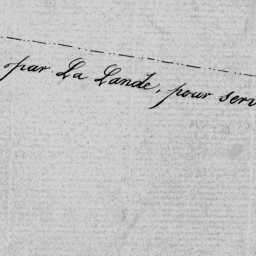 par La Lande, pour serv